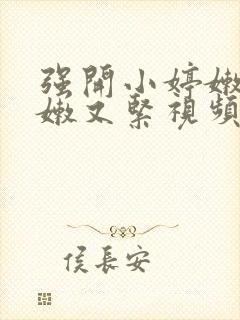 强開小婷嫩
嫩又緊視頻
侯長安